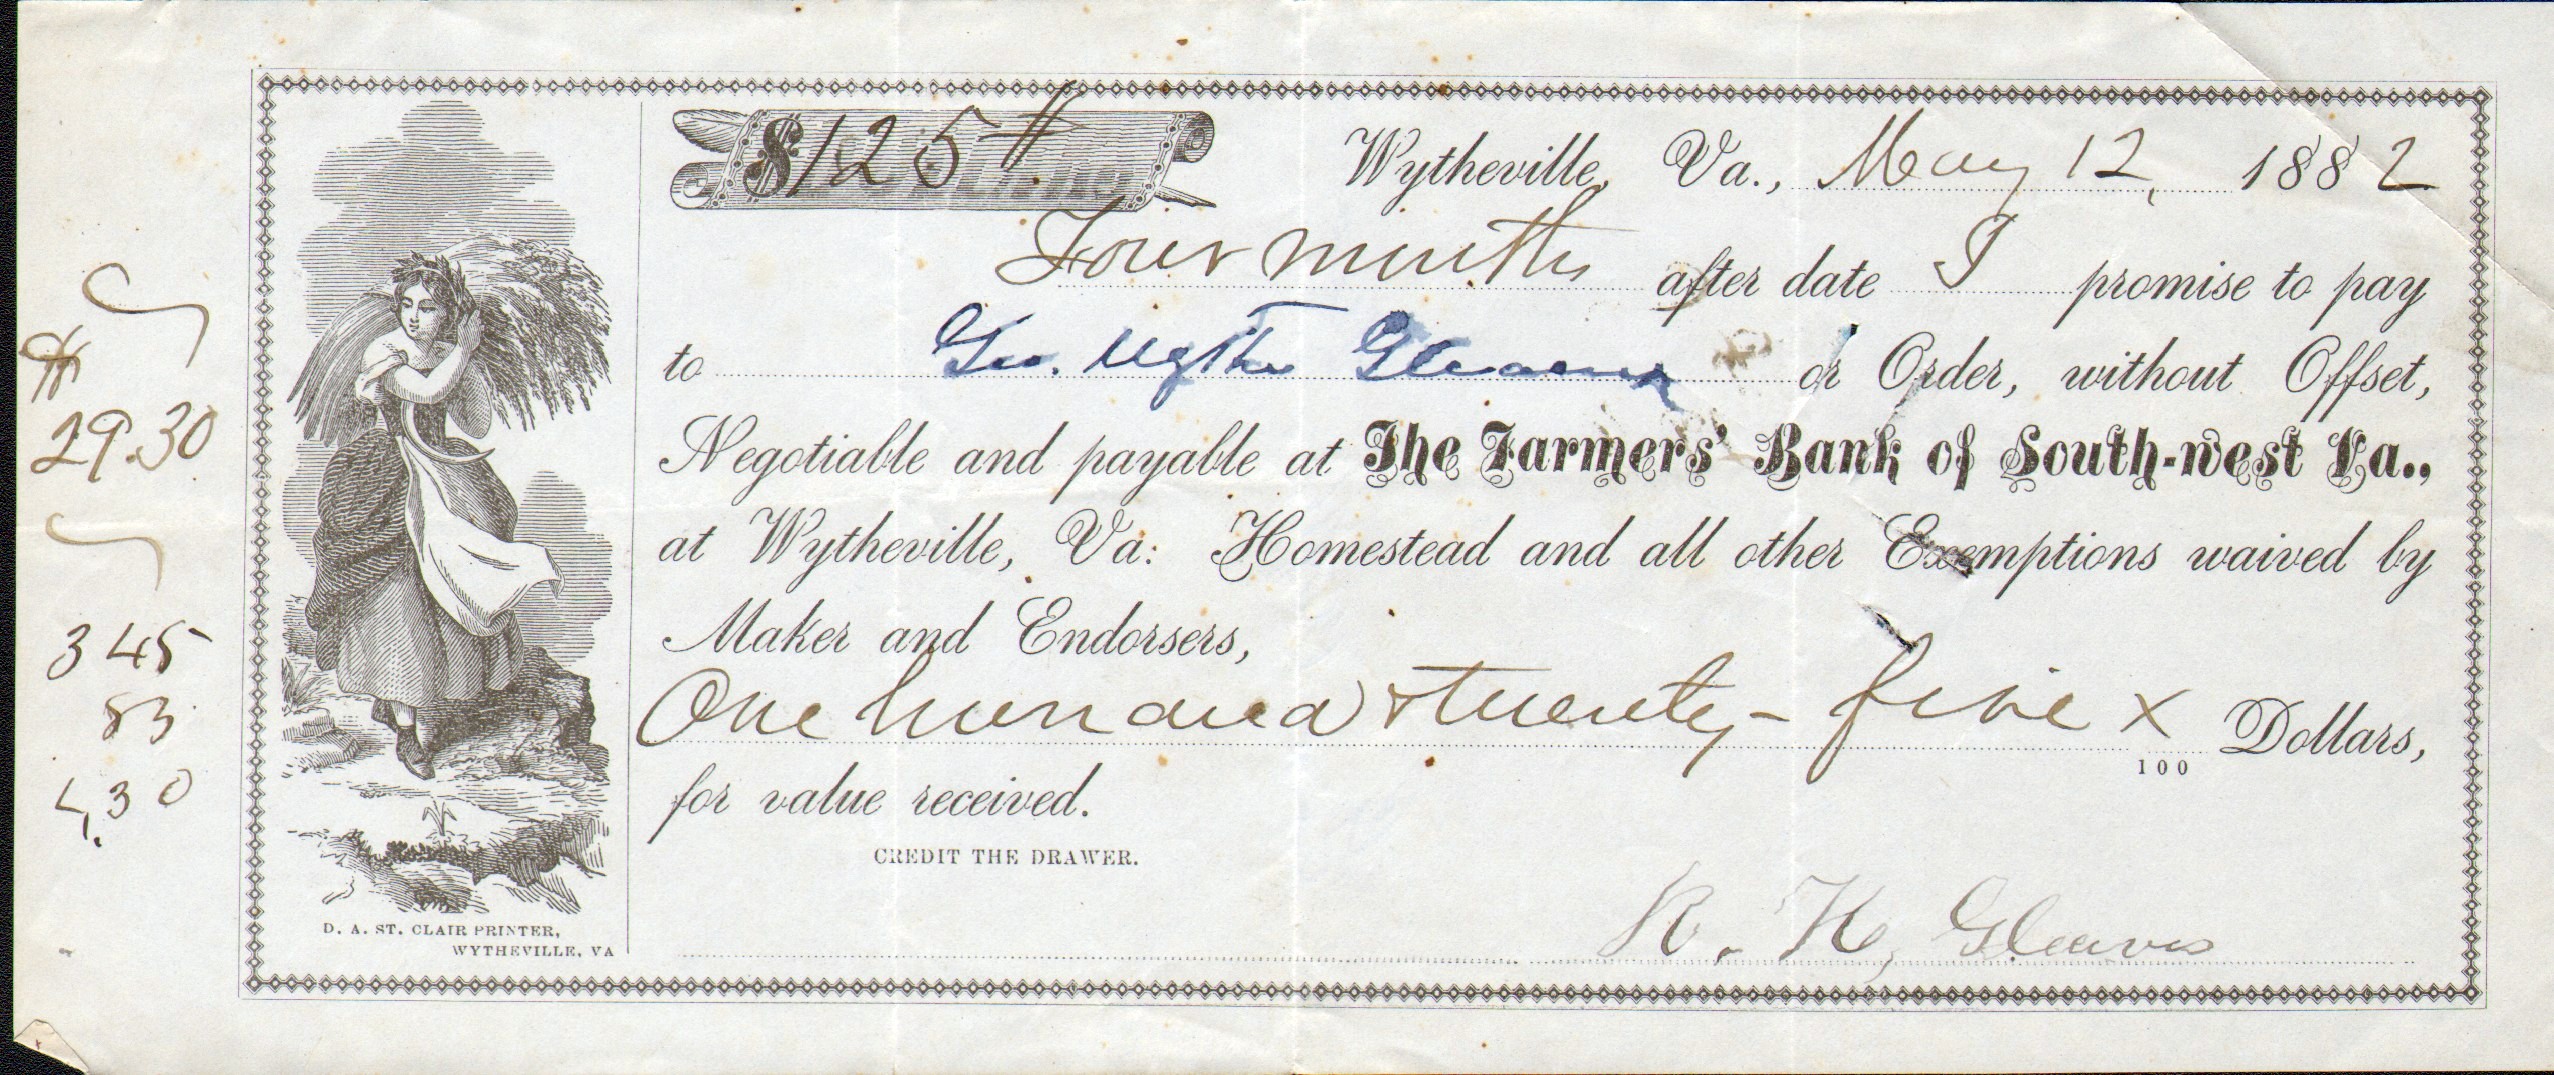 $125
Wytheville, Va., May 12, 1882
Four months after date I promise to pay
to Geo. Wythe Gleaves or Order, without Offset,
Negotiable and payable at The Farmers' Bank of South-west Va.,
at Wytheville, Va: Homestead and all other Exemptions waived by
Maker and Endorsers,
One hundred & twenty-five x
100 Dollars,
for value received.
CREDIT THE DRAWER.
R. K. Gleaves
D. A. ST. CLAIR PRINTER,
WYTHEVILLE, VA
29.30
345
83
4,30